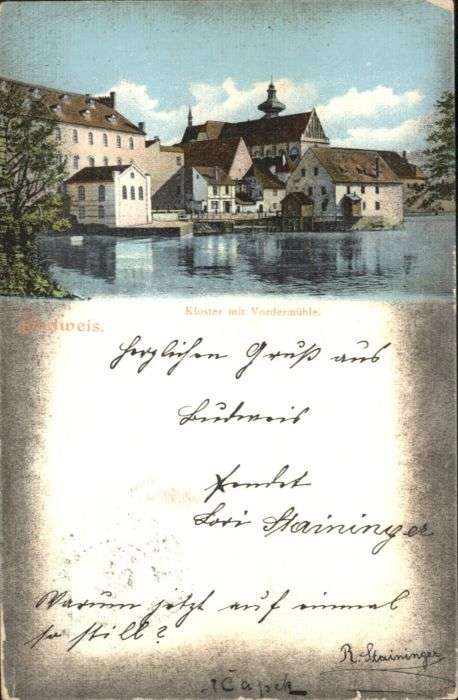 Kloster mit Vordermühle.
Budweis.
Herzlichen Gruß aus
Budweis
sendet
Lori Staininger
Warum jetzt auf einmal
so still?
R. Staininger
Čapek